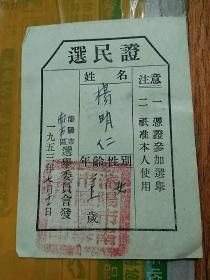 選民證
注意
一 憑證參加選舉
二 祇准本人使用
姓名
楊明仁
年齡性別
歲
選舉委員會發
一九五三年七月十日